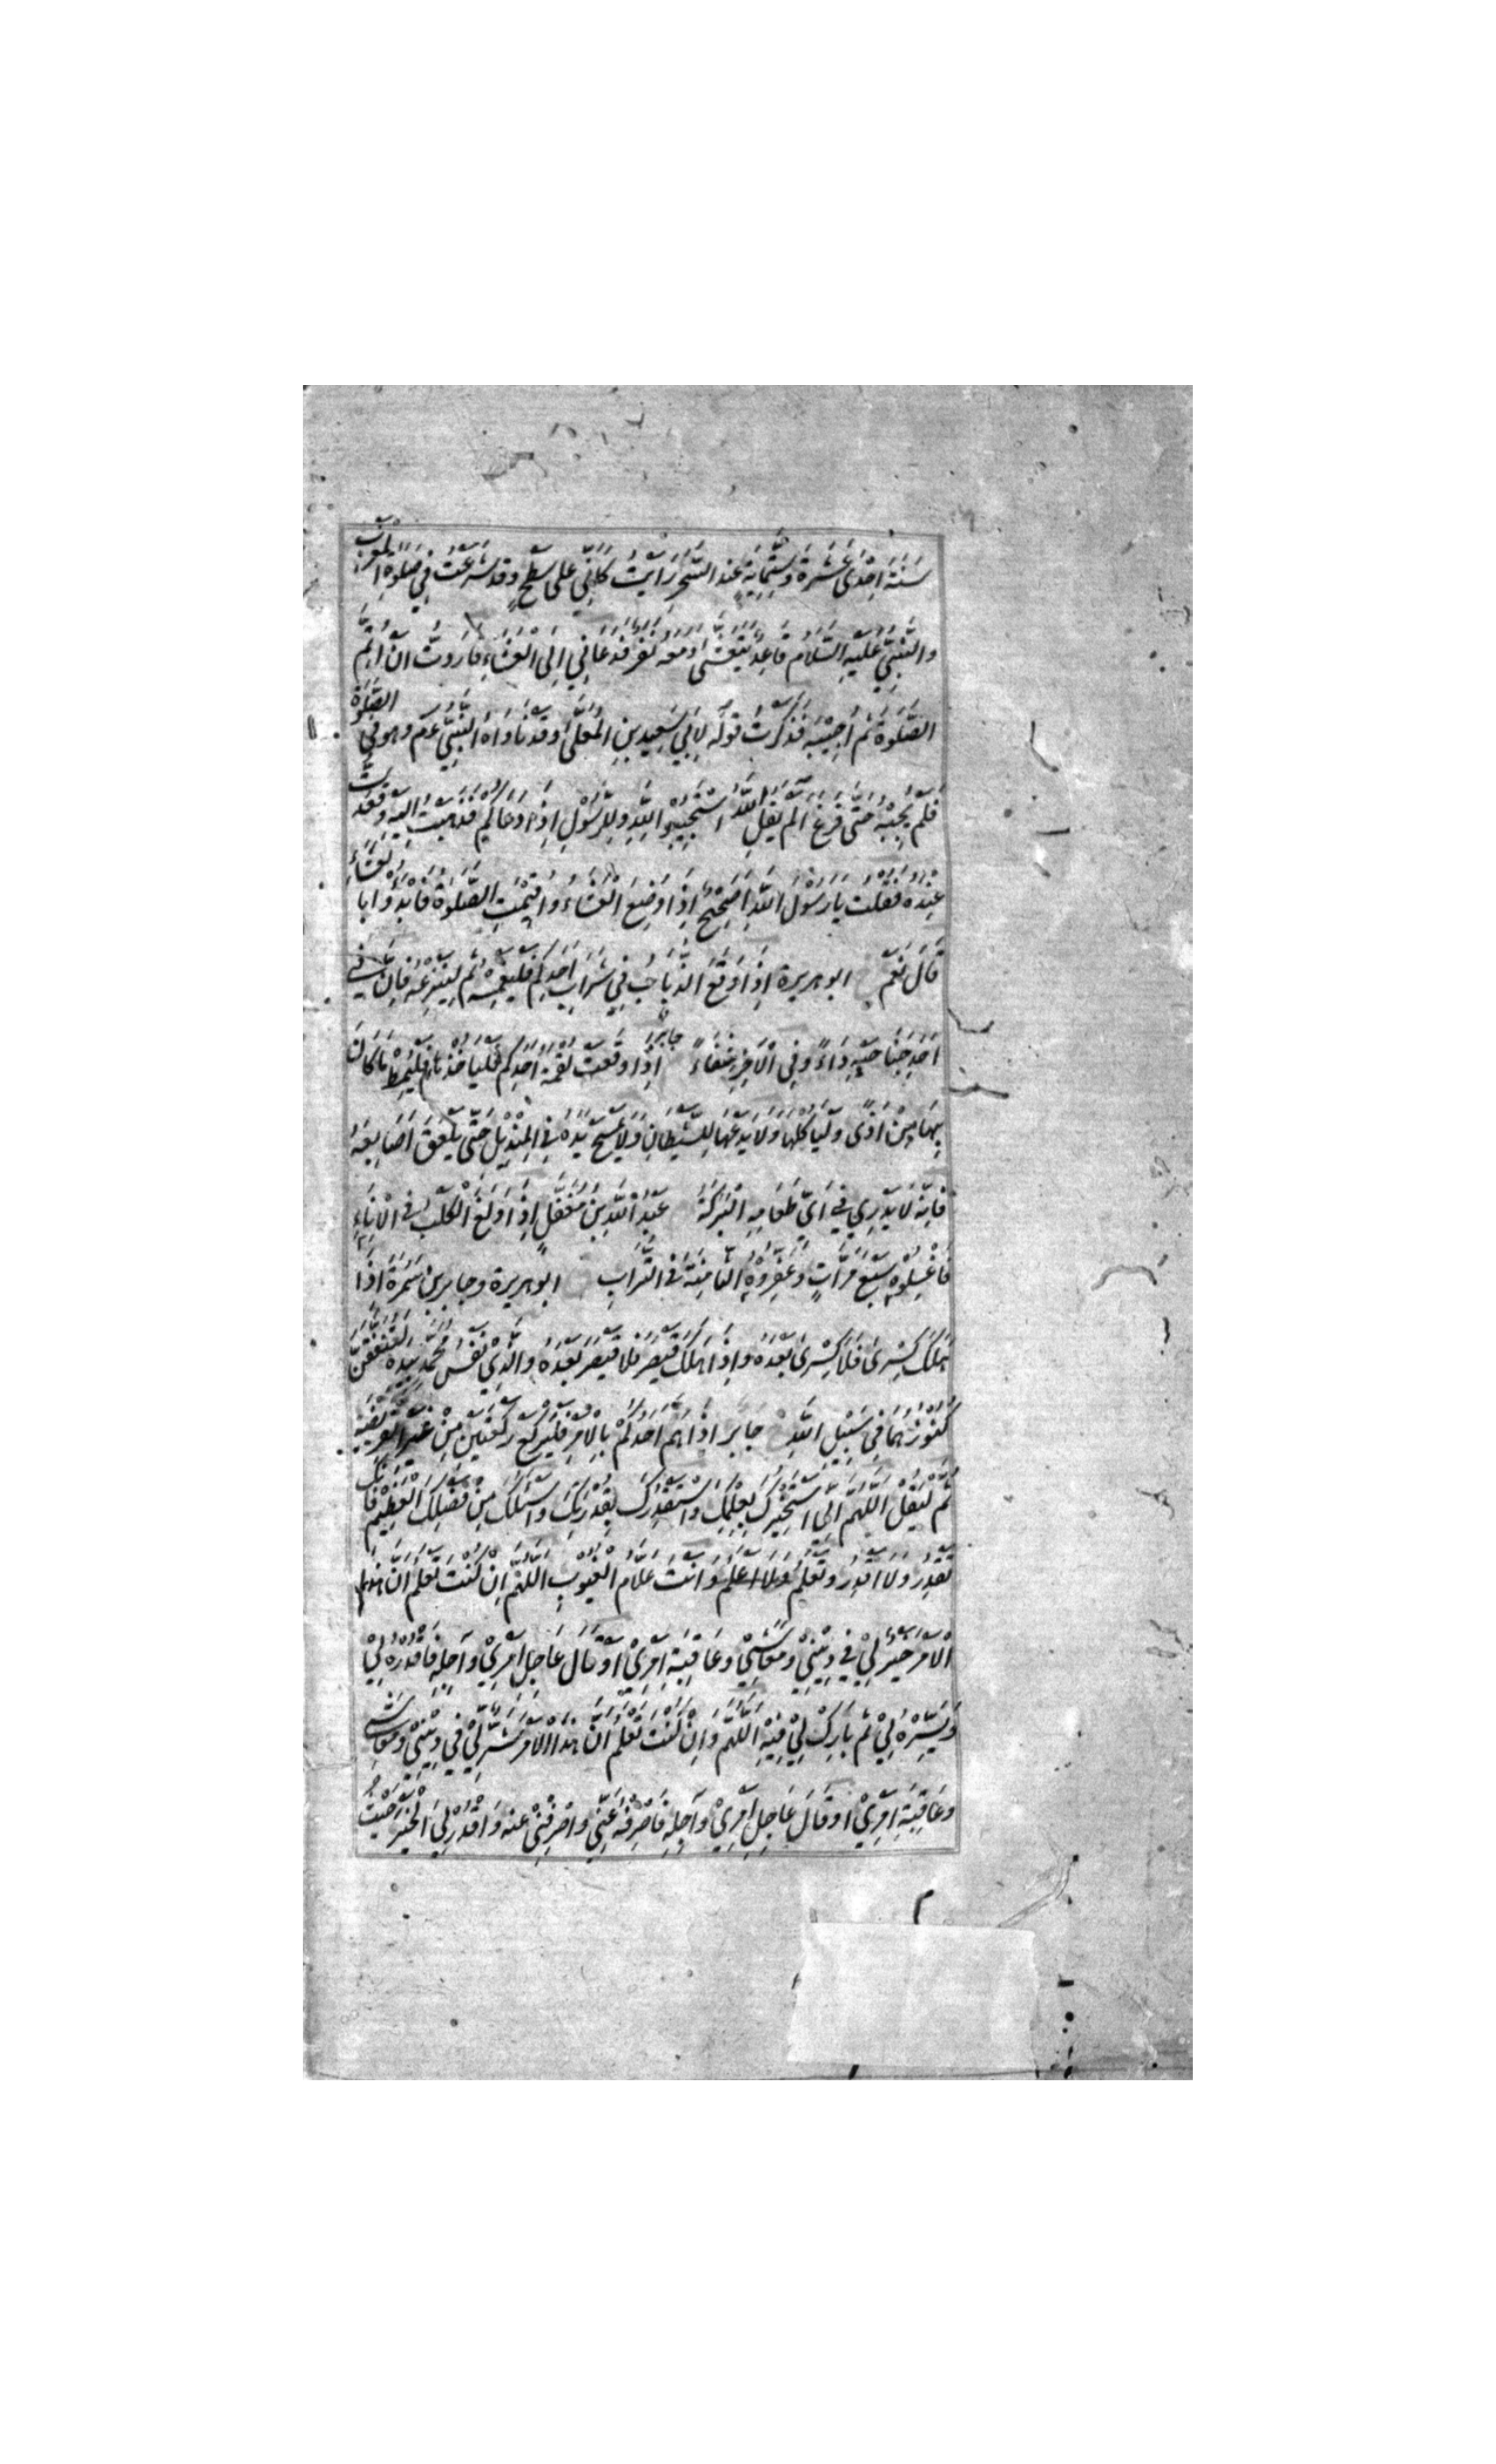 سَنَةَ اِحْدَى عَشَرَةَ وَسِتِّمِائَةٍ عِنْدَ السَّحَرِ رَاَيْتُ كَاَنِّي عَلَى سَطْحٍ وَقَدْ شَرَعْتُ فِي صَلٰوةِ الْمَغْرِبِ
وَالنَّبِيُّ عَلَيْهِ السَّلَامُ قَاعِدٌ يَتَعَشَّى وَمَعَهُ نَفَرٌ فَدَعَانِي اِلَى الْعَشَاءِ فَاَرَدْتُ اَنْ اُتِمَّ
الصَّلٰوةَ ثُمَّ اُجِيْبَهُ فَذَكَرْتُ قَوْلَهُ لِاَبِي سَعِيْدِ بْنِ الْمُعَلَّى وَقَدْ نَادَاهُ النَّبِيُّ عم وَهُوَ فِي الصَّلٰوةِ
فَلَمْ يُجِبْهُ حَتّٰى فَرَغَ اَلَمْ يَقُلِ اللّٰهُ اسْتَجِيْبُوْا لِلّٰهِ وَلِلرَّسُوْلِ اِذَا دَعَاكُمْ فَذَهَبْتُ اِلَيْهِ وَقَعَدْتُ
عِنْدَهُ فَقُلْتُ يَا رَسُوْلَ اللّٰهِ اَصَحِيْحٌ اِذَا وُضِعَ الْعَشَاءُ وَاُقِيْمَتِ الصَّلٰوةُ فَابْدَؤُا بِالْعَشَاءِ
قَالَ نَعَمْ ابوهريرة اِذَا وَقَعَ الذُّبَابُ فِي شَرَابِ اَحَدِكُمْ فَلْيَغْمِسْهُ ثُمَّ لِيَنْزِعْهُ فَاِنَّ فِي
اَحَدِ جَنَاحَيْهِ دَاءً وَفِي الْاٰخَرِ شِفَاءً جابر اِذَا وَقَعَتْ لُقْمَةُ اَحَدِكُمْ فَلْيَاْخُذْهَا فَلْيُمِطْ مَا كَانَ
بِهَا مِنْ اَذًى وَلْيَاْكُلْهَا وَلَا يَدَعْهَا لِلشَّيْطَانِ وَلَا يَمْسَحْ يَدَهُ فِي الْمِنْدِيْلِ حَتّٰى يَلْعَقَ اَصَابِعَهُ
فَاِنَّهُ لَا يَدْرِي فِي اَيِّ طَعَامِهِ الْبَرَكَةُ عَبْدُ اللّٰهِ بْنُ مُغَفَّلٍ اِذَا وَلَغَ الْكَلْبُ فِي الْاِنَاءِ
فَاغْسِلُوْهُ سَبْعَ مَرَّاتٍ وَعَفِّرُوْهُ الثَّامِنَةَ فِي التُّرَابِ ابوهريرة وجابر بن سَمُرَةَ اِذَا
هَلَكَ كِسْرٰى فَلَا كِسْرٰى بَعْدَهُ وَاِذَا هَلَكَ قَيْصَرُ فَلَا قَيْصَرَ بَعْدَهُ وَالَّذِي نَفْسُ مُحَمَّدٍ بِيَدِهِ لَتُنْفَقَنَّ
كُنُوْزُهُمَا فِي سَبِيْلِ اللّٰهِ جَابِر اِذَا هَمَّ اَحَدُكُمْ بِالْاَمْرِ فَلْيَرْكَعْ رَكْعَتَيْنِ مِنْ غَيْرِ الْفَرِيْضَةِ
ثُمَّ لْيَقُلْ اَللّٰهُمَّ اِنِّي اَسْتَخِيْرُكَ بِعِلْمِكَ وَاَسْتَقْدِرُكَ بِقُدْرَتِكَ وَاَسْئَلُكَ مِنْ فَضْلِكَ الْعَظِيْمِ فَاِنَّكَ
تَقْدِرُ وَلَا اَقْدِرُ وَتَعْلَمُ وَلَا اَعْلَمُ وَاَنْتَ عَلَّامُ الْغُيُوْبِ اَللّٰهُمَّ اِنْ كُنْتَ تَعْلَمُ اَنَّ هٰذَا
الْاَمْرَ خَيْرٌ لِيْ فِي دِيْنِيْ وَمَعَاشِيْ وَعَاقِبَةِ اَمْرِيْ اَوْ قَالَ عَاجِلِ اَمْرِيْ وَاٰجِلِهِ فَاقْدُرْهُ لِيْ
وَيَسِّرْهُ لِيْ ثُمَّ بَارِكْ لِيْ فِيْهِ اَللّٰهُمَّ وَاِنْ كُنْتَ تَعْلَمُ اَنَّ هٰذَا الْاَمْرَ شَرٌّ لِيْ فِي دِيْنِيْ وَمَعَاشِيْ
وَعَاقِبَةِ اَمْرِيْ اَوْ قَالَ عَاجِلِ اَمْرِيْ وَاٰجِلِهِ فَاصْرِفْهُ عَنِّي وَاصْرِفْنِيْ عَنْهُ وَاقْدُرْ لِيَ الْخَيْرَ حَيْثُ